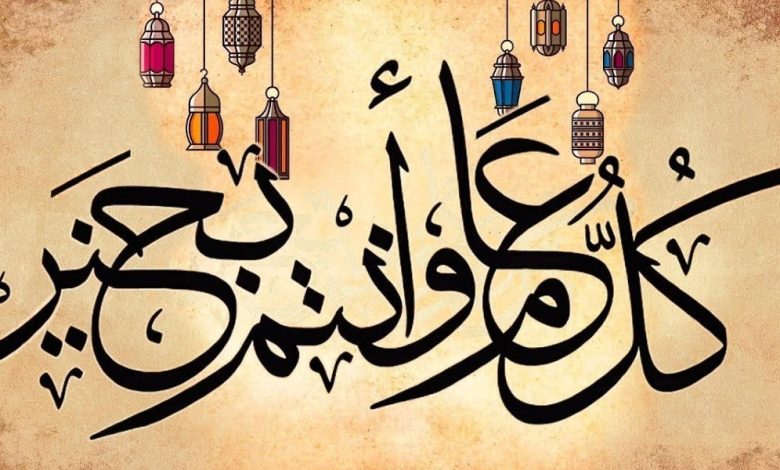 كُلُّ عَام وأنتم بخَير